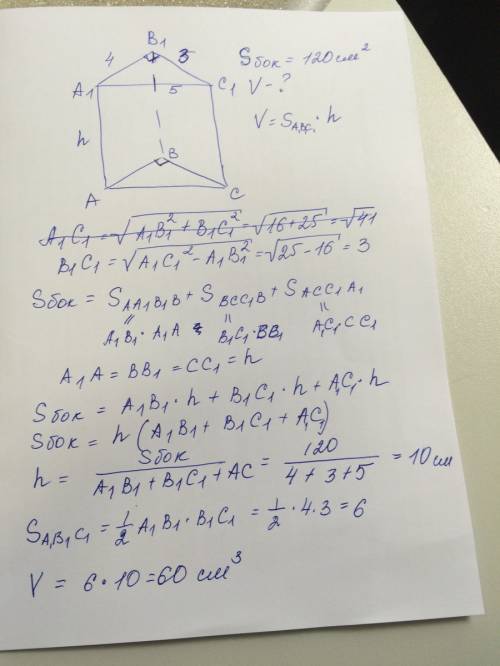 B1
4 3
5
A1 C1
h
B
A C
Sбок = 120 см²
V - ?
V = SA1B1C1 · h
A1C1 = √(A1B1² + B1C1²) = √(16+25) = √41
B1C1 = √(A1C1² - A1B1²) = √(25-16) = 3
Sбок = SAA1B1B + SBCC1B + SACC1A1
" " "
A1B1 · A1A B1C1 · BB1 A1C1 · CC1
A1A = BB1 = CC1 = h
Sбок = A1B1 · h + B1C1 · h + A1C1 · h
Sбок = h (A1B1 + B1C1 + A1C1)
h = Sбок / (A1B1 + B1C1 + AC) = 120 / (4 + 3 + 5) = 10 см
SA1B1C1 = 1/2 A1B1 · B1C1 = 1/2 · 4 · 3 = 6
V = 6 · 10 = 60 см³